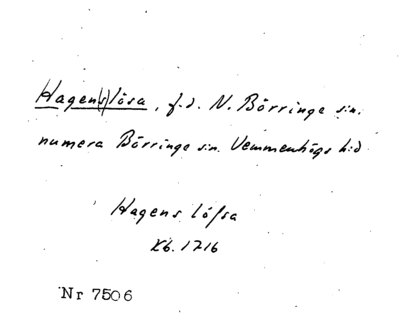 Hagen(s)lösa, f.d. N. Börringe sn.
numera Börringe sn. Vemmenhögs hd
Hagens löfsa
Kb. 1716
Nr 7506